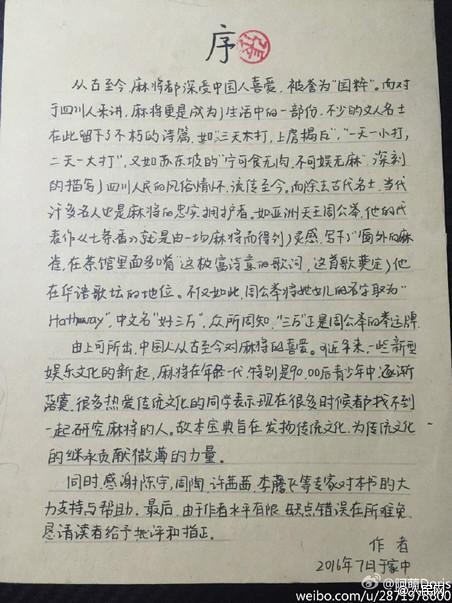 序
从古至今,麻将都深受中国人喜爱,被誉为“国粹”。而对
于四川人来讲,麻将更是成为了生活中的一部份,不少的文人名士
在此留下了不朽的诗篇,如“三天不打,上房揭瓦”,“一天一小打,
二天一大打”,又如苏东坡的“宁可食无肉,不可娱无麻”,深刻
的描写了四川人民的风俗情怀,流传至今。而除去古代名士,当代
许多名人也是麻将的忠实拥护者。如亚洲天王周公举,他的代
表作《七条香》就是由一场麻将而得到了灵感,写下了“窗外的麻
雀,在茶馆里面多嘴”这极富诗意的歌词,这首歌奠定了他
在华语歌坛的地位。不仅如此,周公举将她女儿的名字取为“
Hathaway”,中文名“周三万”,众所周知,“三万”正是周公举的幸运牌.
由上可所出,中国人从古至今对麻将的喜爱。可近年来,一些新型
娱乐文化的新起,麻将在年轻一代,特别是90,00后青少年中,逐渐
落寞,很多热爱传统文化的同学表示现在很多时候都找不到
一起研究麻将的人。故本宝典旨在发扬传统文化,为传统文化
的继承贡献微薄的力量。
同时,感谢陈宇,周陶,许茜茜,李飞等专家对本书的大
力支持与帮助。最后,由于作者水平有限,缺点错误在所难免,
恳请读者给予批评和指正。
作者
2016年7月于家中
@阿萌Doris
@人民网
weibo.com/u/2871976600